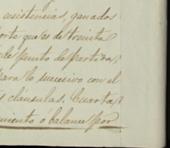 existencias, ganados
orte que es de treinta
de punto de partida,
para lo sucesivo con el
s clausulas. Cuarta,
miento ó balance por